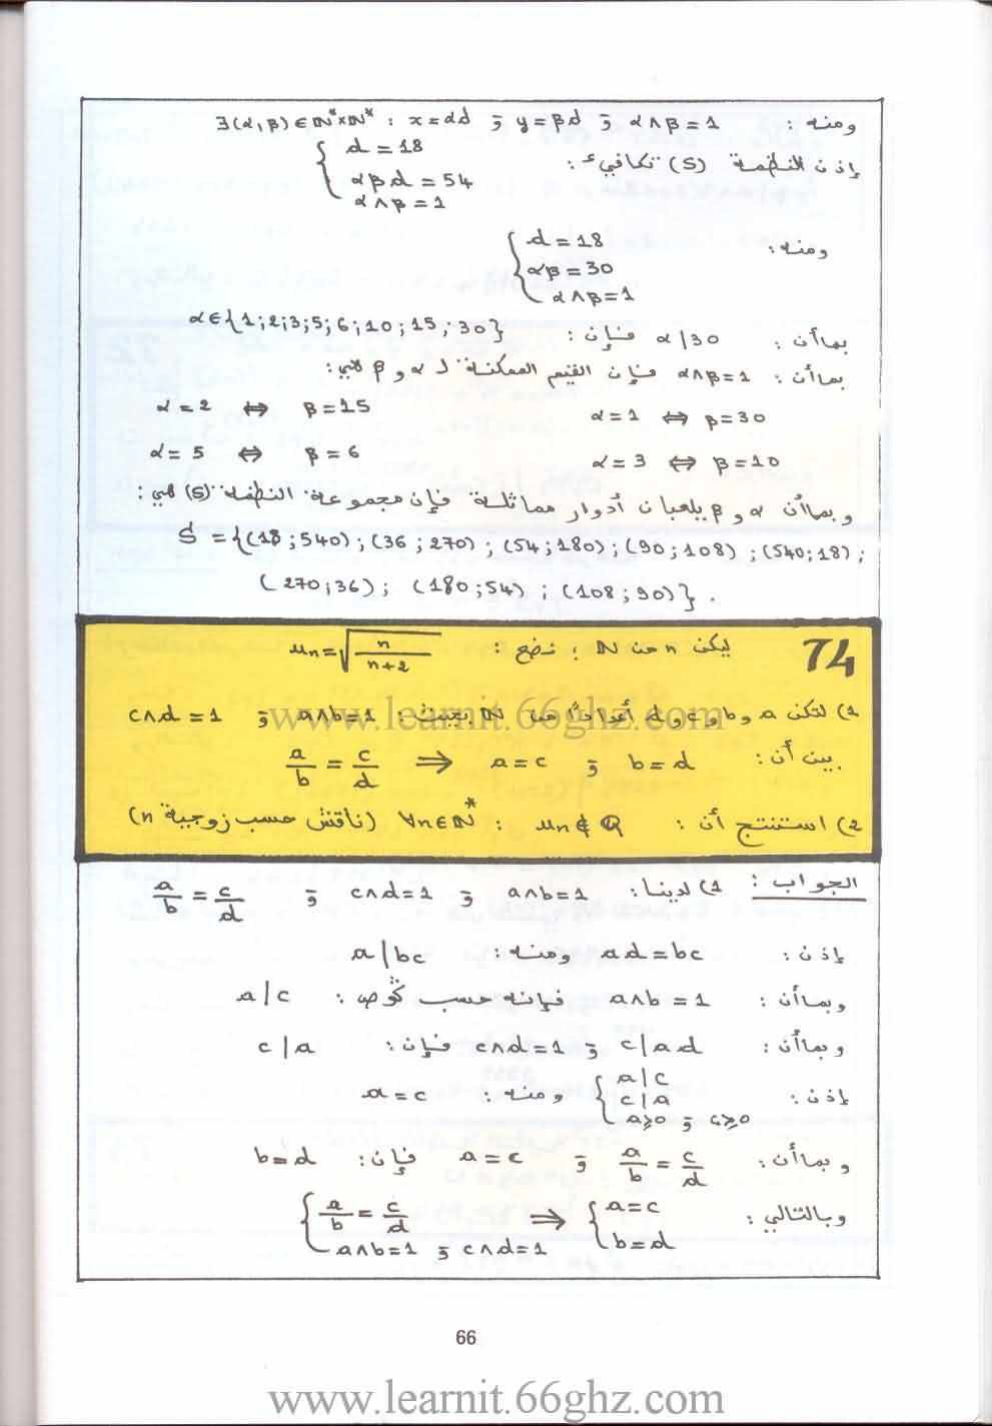 ومنه : ∃(α,β) ∈ ℕ*×ℕ* : x=αd و y=βd و α∧β=1
إذن النظمة (S) تكافيء : { d = 18
αβd = 54
α∧β = 1
ومنه : { d = 18
αβ = 30
α∧β=1
بما أن : α|30 فإن : α∈{1;2;3;5;6;10;15;30}
بما أن : α∧β=1 فإن القيم الممكنة لـ α و β هي :
α=1 ⇔ β=30 α=2 ⇔ β=15
α=3 ⇔ β=10 α=5 ⇔ β=6
وبما أن α و β يلعبان أدوار مماثلة فإن مجموعة النظمة (S) هي :
S = {(18;540);(36;270);(54;180);(90;108);(540;18);
(270;36);(180;54);(108;90)}.
74 ليكن n من ℕ ؛ نضع : uₙ=√(n/(n+2))
1) لتكن a و b و c و d أعدادا من ℕ بحيث : a∧b=1 و c∧d=1
www.learnit.66ghz.com
بين أن : a/b = c/d ⇒ a=c و b=d
2) استنتج أن : ∀n∈ℕ* : uₙ∉ℚ (ناقش حسب زوجية n)
الجواب : 1) لدينا : a∧b=1 و c∧d=1 و a/b = c/d
إذن : ad=bc ومنه : a|bc
وبما أن : a∧b=1 فإنه حسب كوص : a|c
وبما أن : c|ad و c∧d=1 فإن : c|a
إذن : { a|c
c|a
a≥0 و c≥0 ومنه : a=c
وبما أن : a/b = c/d و a=c فإن : b=d
وبالتالي : { a/b = c/d
a∧b=1 و c∧d=1 ⇒ { a=c
b=d
66
www.learnit.66ghz.com